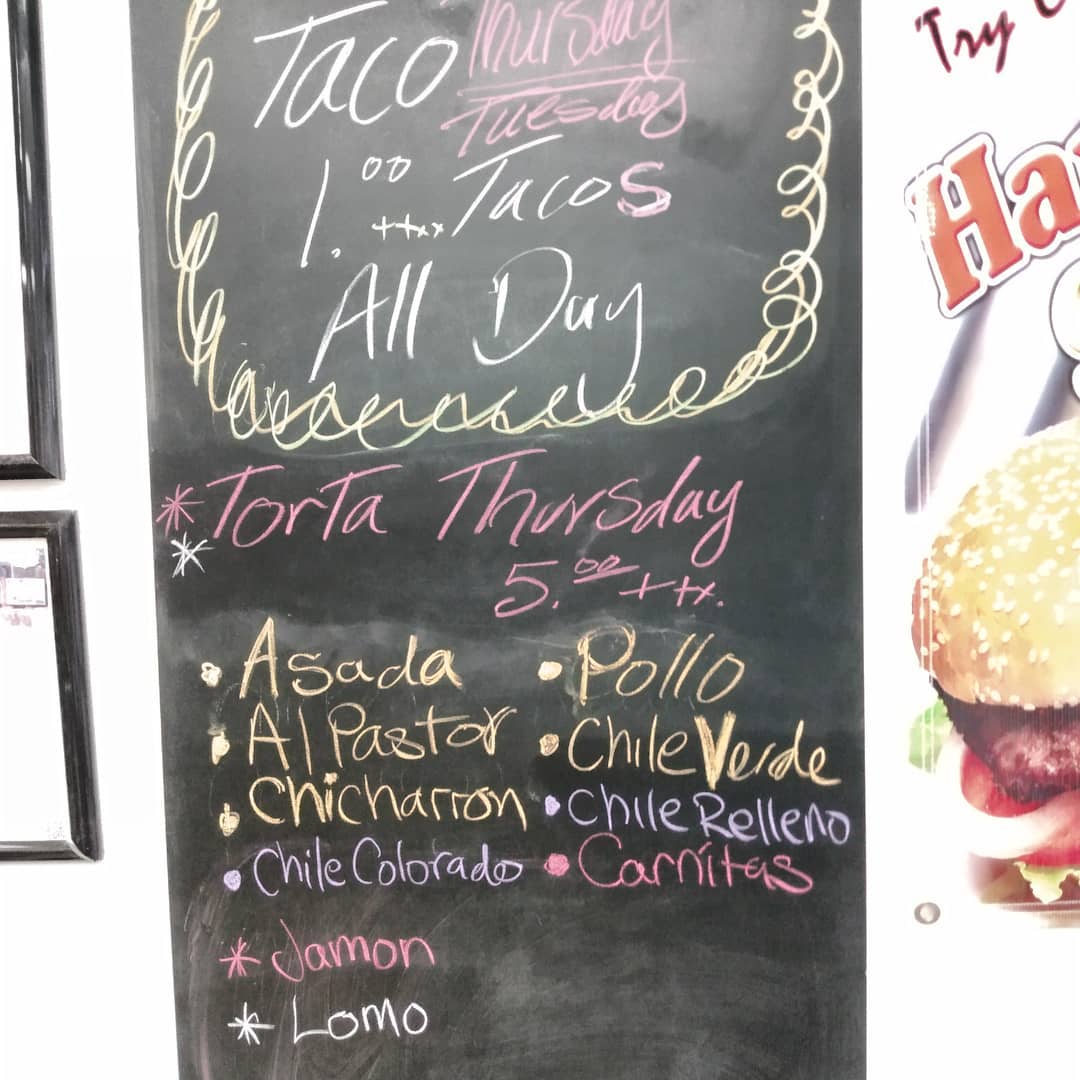 Taco Thursday
Tuesday
1.00 ++xx Tacos
All Day
* Torta Thursday
*
5.00 + tx.
• Asada • Pollo
• Al Pastor • Chile Verde
• Chicharron • Chile Relleno
• Chile Colorado • Carnitas
* Jamon
* Lomo
Try
Ha